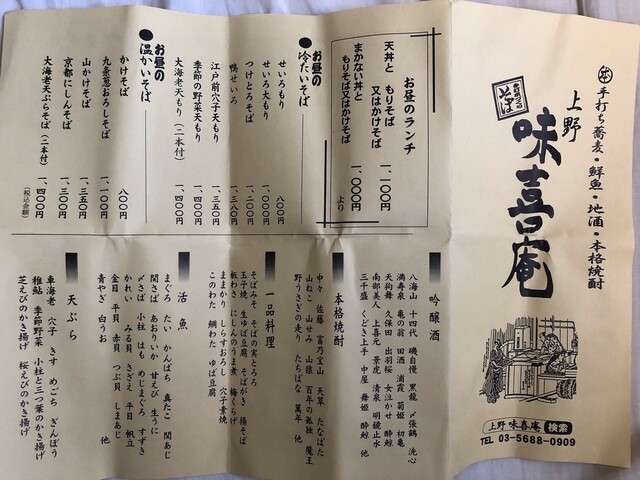 手打ち蕎麦・鮮魚・地酒・本格焼酎
そば
上野
味喜庵
上野 味喜庵 検索
TEL 03-5688-0909
お昼のランチ
天丼と もりそば 又はかけそば
一、一〇〇円
まかない丼と
もりそば又はかけそば
一、〇〇〇円 より
●お昼の冷たいそば
せいろもり 八〇〇円
せいろ大もり 一、〇〇〇円
つけとろそば 一、二〇〇円
鴨せいろ 一、三八〇円
江戸前穴子天もり 一、三五〇円
季節の野菜天もり 一、四〇〇円
大海老天もり(二本付) 一、四〇〇円
●お昼の温かいそば
かけそば 八〇〇円
九条葱おろしそば 一、一〇〇円
山かけそば 一、三五〇円
京都にしんそば 一、三〇〇円
大海老天ぷらそば(二本付) 一、四〇〇円
(税込金額)
吟醸酒
八海山 十四代 磯自慢 黒龍 〆張鶴 洗心
満寿泉 亀の翁 田酒 浦霞 菊姫 初亀
天狗舞 久保田 出羽桜 女泣かせ 酔鯨
南部美人 上喜元 景虎 清泉 明鏡止水
三千盛 くどき上手 中屋 舞姫 酔鯨 他
本格焼酎
中々 佐藤 富乃宝山 天草 たなばた
山ねこ 山せみ 山猿 百年の孤独 魔王
野うさぎの走り たちばな 萬年 他
一品料理
そばみそ そばの実とろろ
玉子焼 生ゆば豆腐 そばがき 揚そば
板わさ にしんのうま煮 梅くらげ
ままかり しらすおろし 穴子素焼
このわた 鯛わた ゆば豆腐
活魚
まぐろ たい かんぱち 真たこ 関あじ
関さば あおりいか 甘えび 生うに
〆さば 小柱 はも めじまぐろ すずき
かれい みる貝 さざえ 平目 帆立
金目 平貝 赤貝 つぶ貝 しまあじ
青やぎ 白うお 他
天ぷら
車海老 穴子 きす めごち ぎんぽう
稚鮎 季節野菜 小柱と三つ葉のかき揚げ
芝えびのかき揚げ 桜えびのかき揚げ